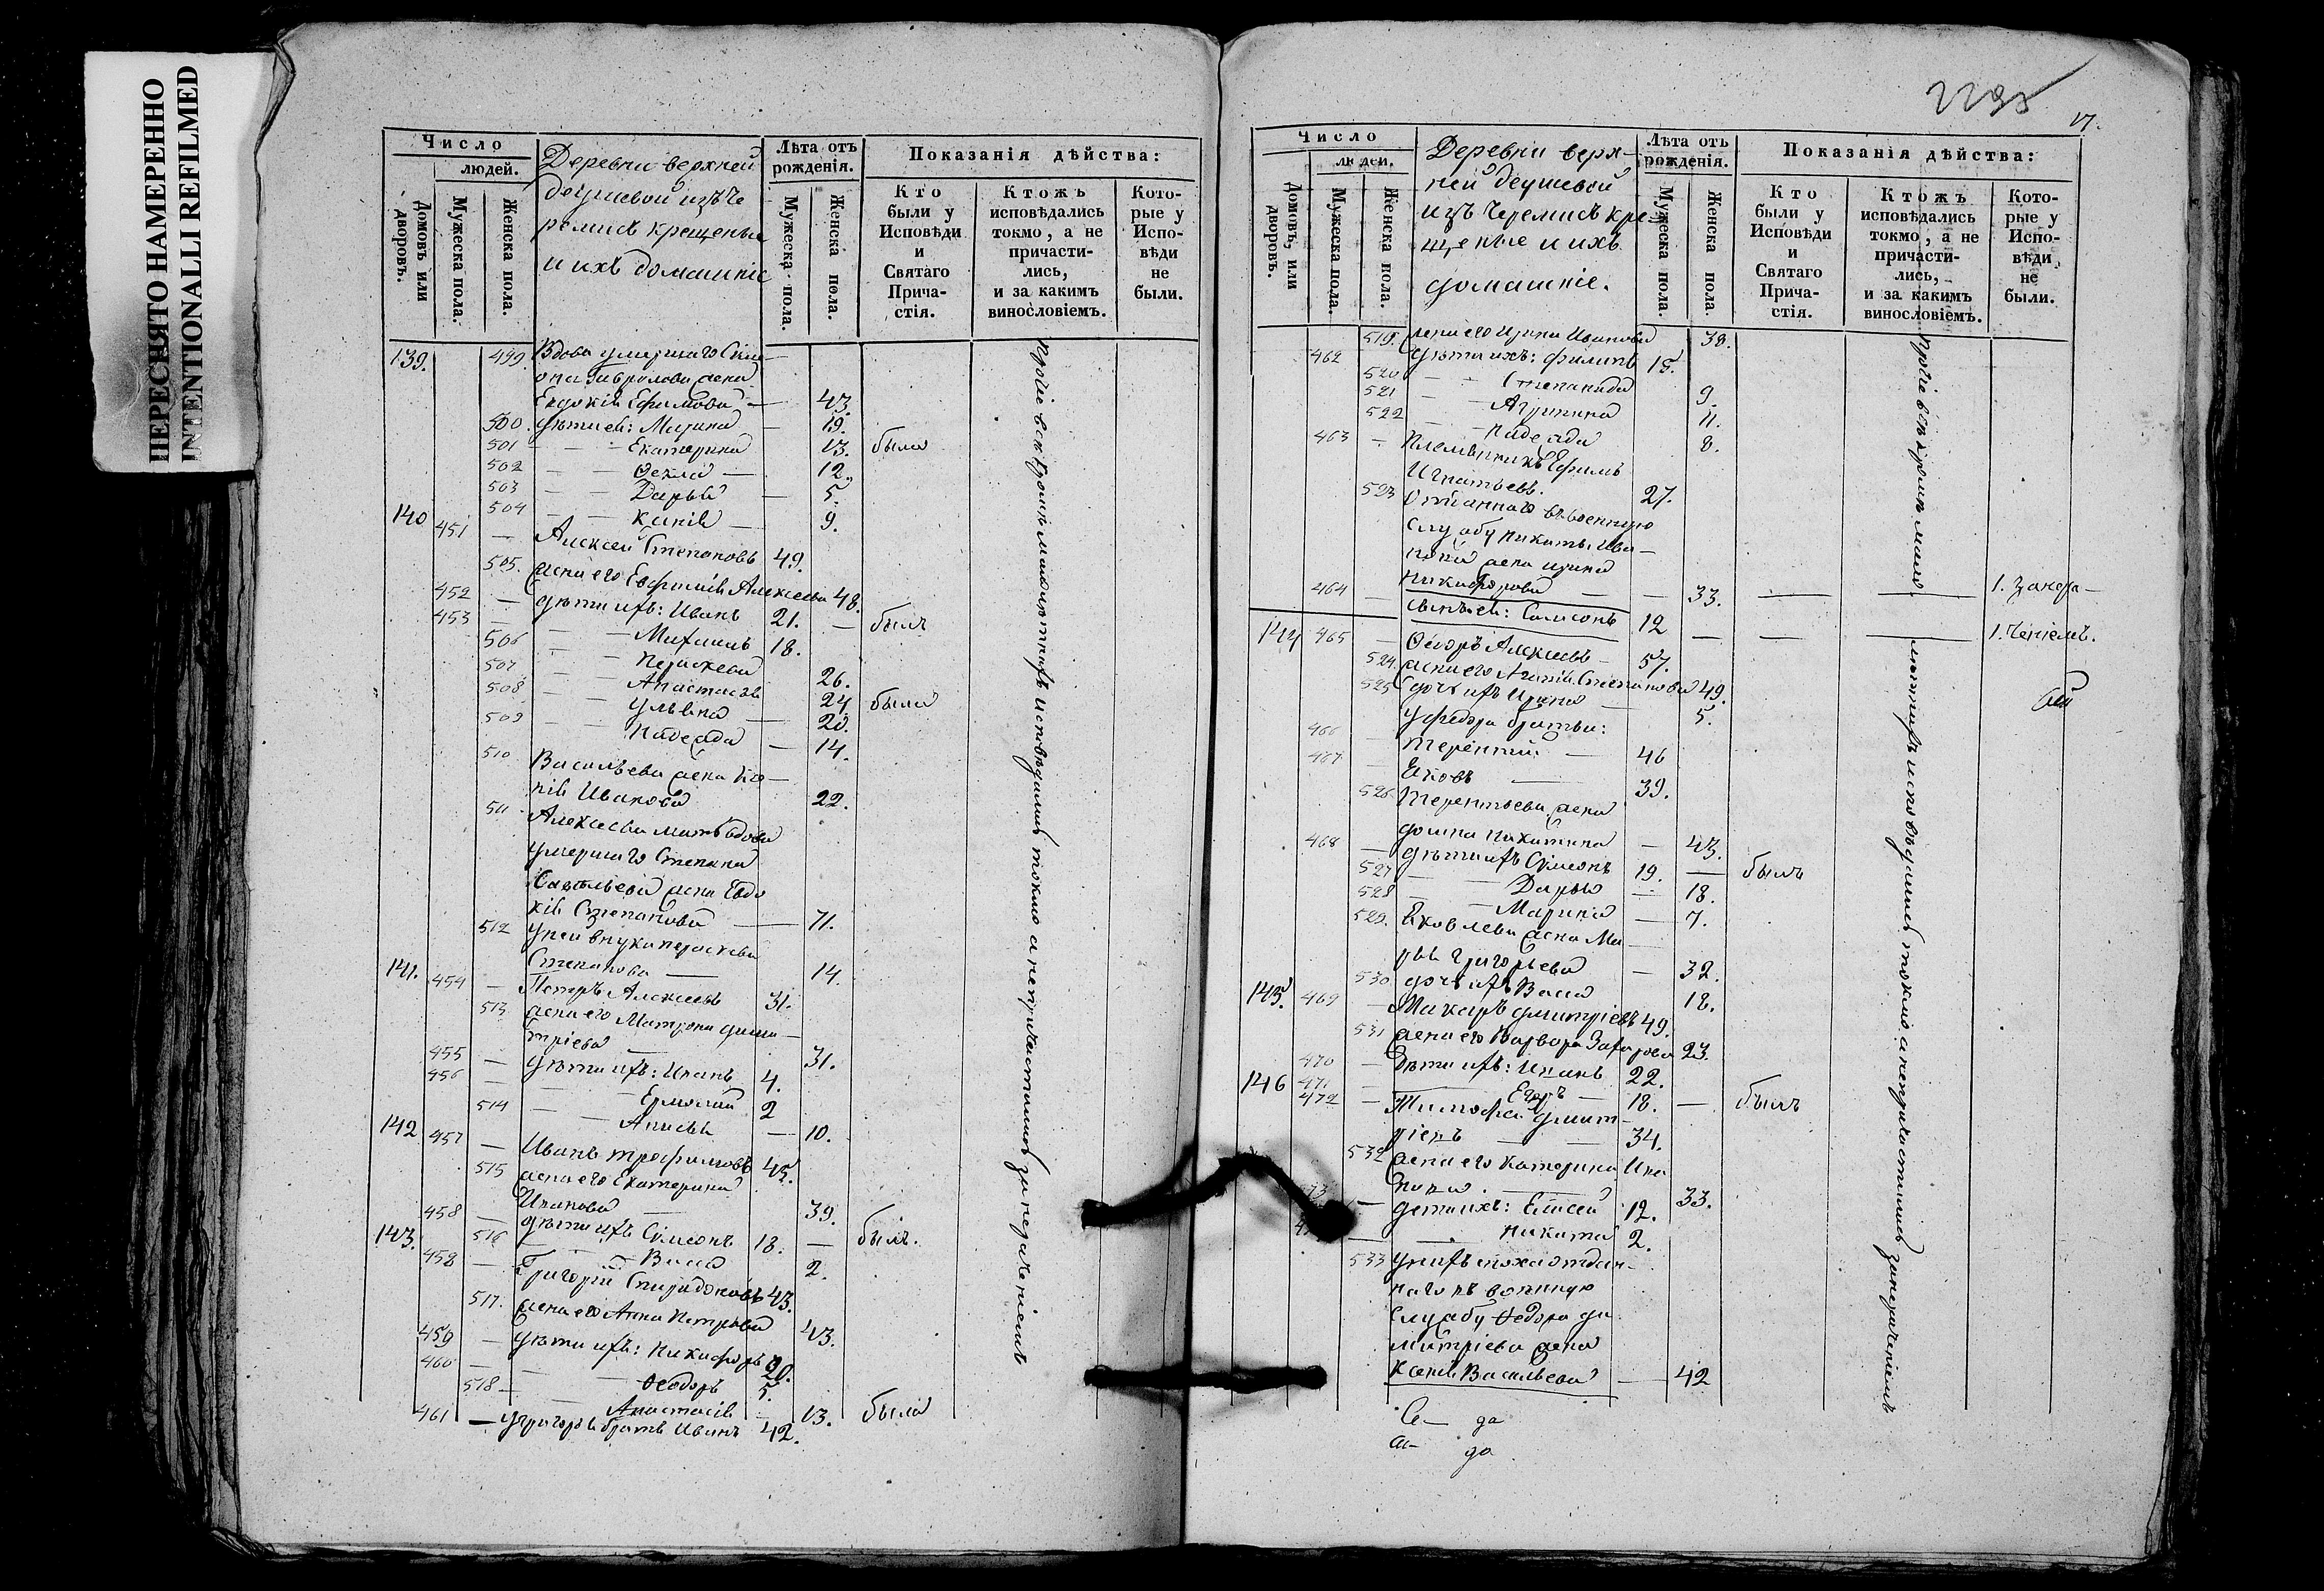 ПЕРЕСНЯТО НАМЕРЕННО
INTENTIONALLI REFILMED
Число
людей.
Домовъ или дворовъ.
Мужеска пола.
Женска пола.
Деревни верхней
деушевой изъ че
ремисъ крещеныя
и ихъ домашніе
Лѣта отъ рожденія.
Мужеска пола.
Женска пола.
Показанія дѣйства:
Кто были у Исповѣди и Святаго Прича- стія.
Ктожъ исповѣдались токмо, а не причасти- лись, и за какимъ винословіемъ.
Кото- рые у Испо- вѣди не были.
139. 499. Вдова умершаго Симе-
она Гаврилова жена
Евдокія Ефимова — 43.
500. Дѣти ей: Марина — 19.
501 — — Екатерина 13. была
502 — — Ѳекла — 12.
503 — — Дарья — 5.
504 — — Ксенія — 9.
140 451 — Алексей Степановъ 49.
505. жена его Евфимія Алексеева 48.
452 — дѣти ихъ: Иванъ 21. — былъ
453 — — Михаилъ 18.
506 — — Параскева 26.
507. — — Анастасія 24 была
508 — — Ульяна — 20.
509 — — Надежда — 14.
510 Васильева жена Ксе-
нія Иванова 22.
511 Алексеева мать вдова
умершаго Степана
Савельева жена Евдо
кія Степанова — 71.
512 у ней внука параскева
Степанова — 14.
141. 454 — Петръ Алексеевъ 31.
513 жена его Матрона дими-
тріева — 31.
455 — дѣти ихъ: Иванъ 4.
456 — — Ермолай 2
514 — — Анисья — 10.
142 457 — Иванъ трофимовъ 45.
515 жена его Екатерина
Иванова — 39.
458 — дѣти ихъ Симеонъ 18. — былъ.
516 — — Васса 2.
143. 458 — Григорій Спиридоновъ 43.
517. жена его Анна Петрова 43.
459 — дѣти ихъ: Никифоръ 20.
460 — — Ѳеодоръ 5.
518 — — Анастасія — 13. была
461 — у григорья братъ Иванъ 42.
Прочіе всѣ кромѣ малолѣтнихъ исповѣдались токмо а не причастились за нераченіемъ
17.
Число
людей.
Домовъ, или дворовъ.
Мужеска пола.
Женска пола.
Деревни верх-
ней деушевой
изъ Черемисъ кре-
щеные и ихъ
домашніе.
Лѣта отъ рожденія.
Мужеска пола.
Женска пола.
Показанія дѣйства:
Кто были у Исповѣди и Святаго Прича- стія.
Ктожъ исповѣдались токмо, а не причасти- лись, и за какимъ винословіемъ.
Кото- рые у Испо- вѣди не были.
519. жена его Ирина Иванова 38.
462 дѣти ихъ: филипъ 15.
520 — — Степанида 9.
521 — — Агрипина 11.
522 — — Надежда 8.
463 — Племянникъ Ефимъ
Игнатьевъ. 27.
523 Отданнаго въ военную
службу никиты Ива-
нова жена ирина
Никифорова — — 33. — —
464 — сынъ ей: Самсонъ 12 — — —
144 465 — Ѳеодоръ Алексеевъ — 57.
524. жена его Агафія Степанова 49.
525 дочь ихъ Ирина — 5.
у федора братья:
466 терентій — 46
467 — Яковъ — 39.
526 терентьева жена
домна никитина — 43.
468 — дѣти ихъ Симеонъ 19. — былъ
527 — — Дарья — 18.
528 — — Марина — 7.
529. Яковлева жена Ма-
рья Григорьева — 32.
530 дочь ихъ Васса 18.
145. 469 — Макаръ дмитріевъ 49.
531 жена его Варвара Захарова 23.
470 — Дѣти ихъ: Иванъ 22.
471 — Егоръ — 18. — былъ
146 472 — Тимофей дмит-
ріевъ — — 34.
532 жена его катерина Ива
нова — 33.
— дети ихъ: Елисей 12.
— — Никита 2.
533 у нихъ сноха отдан-
наго въ военную
службу Ѳедора ди-
митріева жена
Ксенія Васильева — 42
Прочіе всѣ кромѣ мало-
лѣтнихъ исповѣдались токмо, а не причастились за нераченіемъ